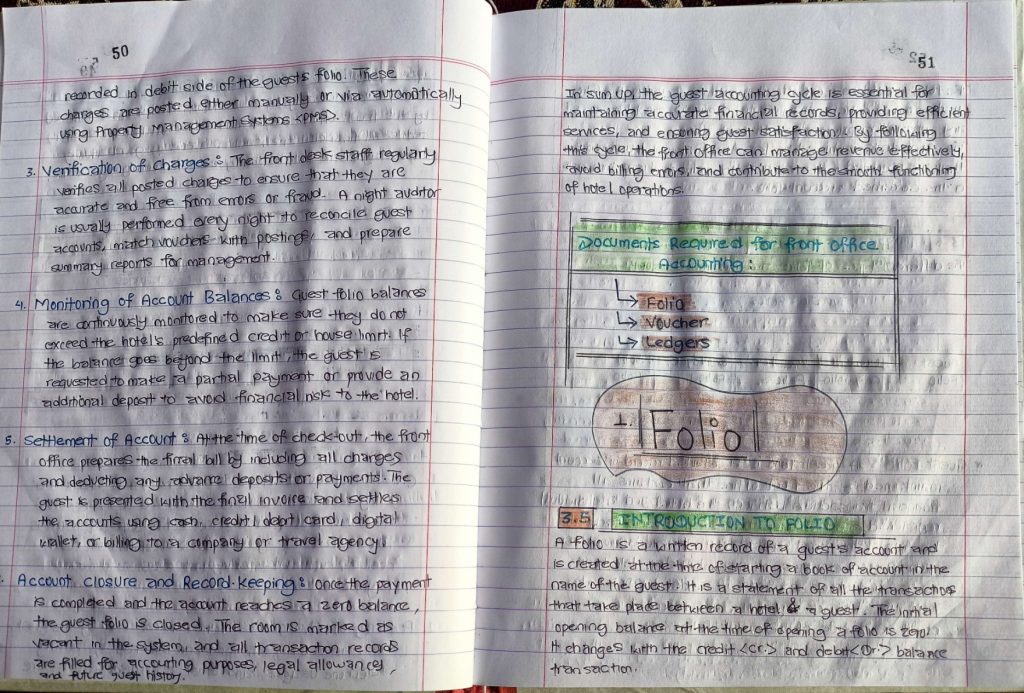 50
recorded in debit side of the guests folio. These
charges are posted either manually or via automatically
using Property Management Systems <PMS>.
3. Verification of charges : The front desk staff regularly
verifies all posted charges to ensure that they are
accurate and free from errors or fraud. A night auditor
is usually performed every night to reconcile guest
accounts, match vouchers with postings, and prepare
summary reports for management.
4. Monitoring of Account Balances : Guest folio balances
are continuously monitored to make sure they do not
exceed the hotel's predefined credit or house limit. If
the balance goes beyond the limit, the guest is
requested to make a partial payment or provide an
additional deposit to avoid financial risk to the hotel.
5. Settlement of Account : At the time of check-out, the front
office prepares the final bill by including all charges
and deducting any advance deposits or payments. The
guest is presented with the final invoice and settles
the accounts using cash, credit / debit card, digital
wallet, or billing to a company or travel agency.
Account closure and Record-keeping : once the payment
is completed and the account reaches a zero balance,
the guest folio is closed. The room is marked as
vacant in the system, and all transaction records
are filled for accounting purposes, legal allowances,
and future guest history.
51
In sum up, the guest accounting cycle is essential for
maintaining accurate financial records, providing efficient
services, and ensuring guest satisfaction. By following
this cycle, the front office can manage revenue effectively,
avoid billing errors, and contribute to the smooth functioning
of hotel operations.
Documents Required for front office
Accounting :
↳ Folio
↳ Voucher
↳ Ledgers
1. Folio
3.5 INTRODUCTION TO FOLIO
A folio is a written record of a guest's account and
is created at the time of starting a book of account in the
name of the guest. It is a statement of all the transactions
that take place between a hotel & a guest. The initial
opening balance at the time of opening a folio is zero.
It changes with the credit <Cr.> and debit <Dr.> balance
transaction.